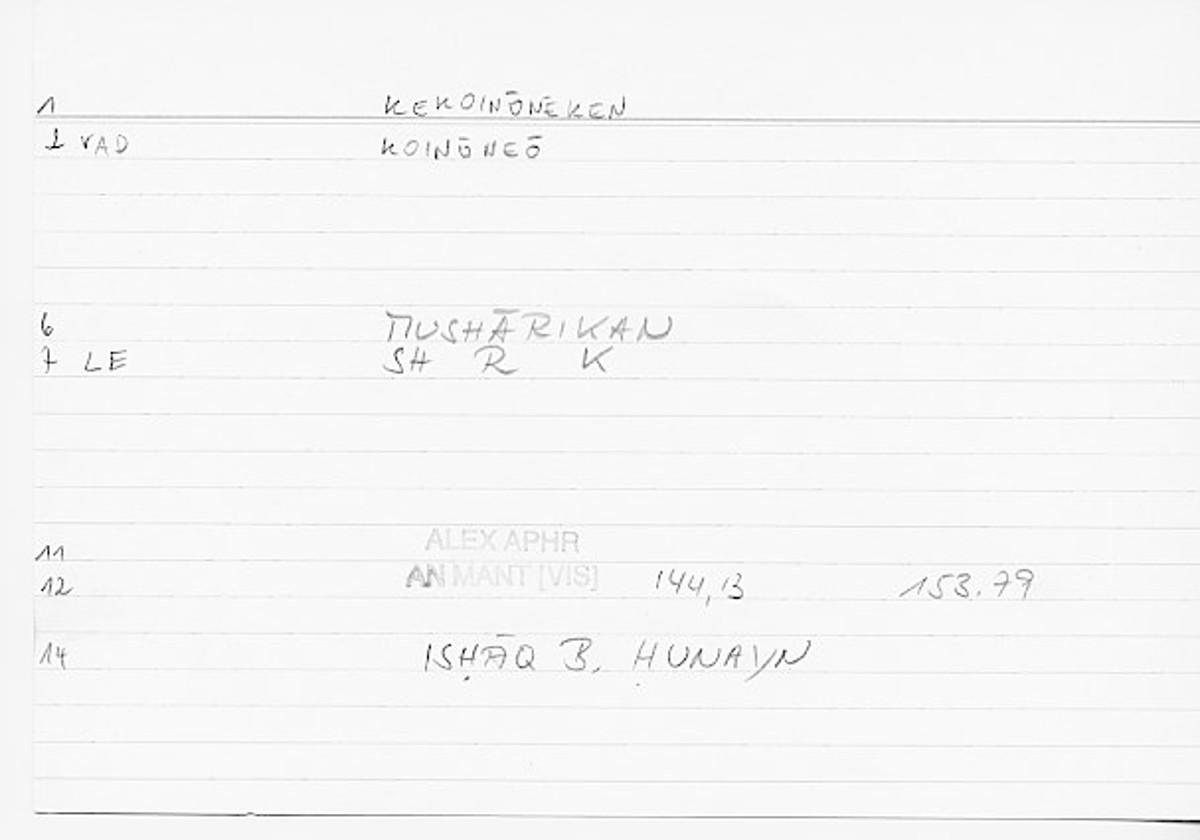 1 KEKOINŌNĒKEN
2 VAD KOINŌNEŌ
6 MUSHĀRIKAN
7 LE SH R K
11 ALEX APHR
12 AN MANT [VIS] 144,13 153.79
14 ISḤĀQ B. ḤUNAYN